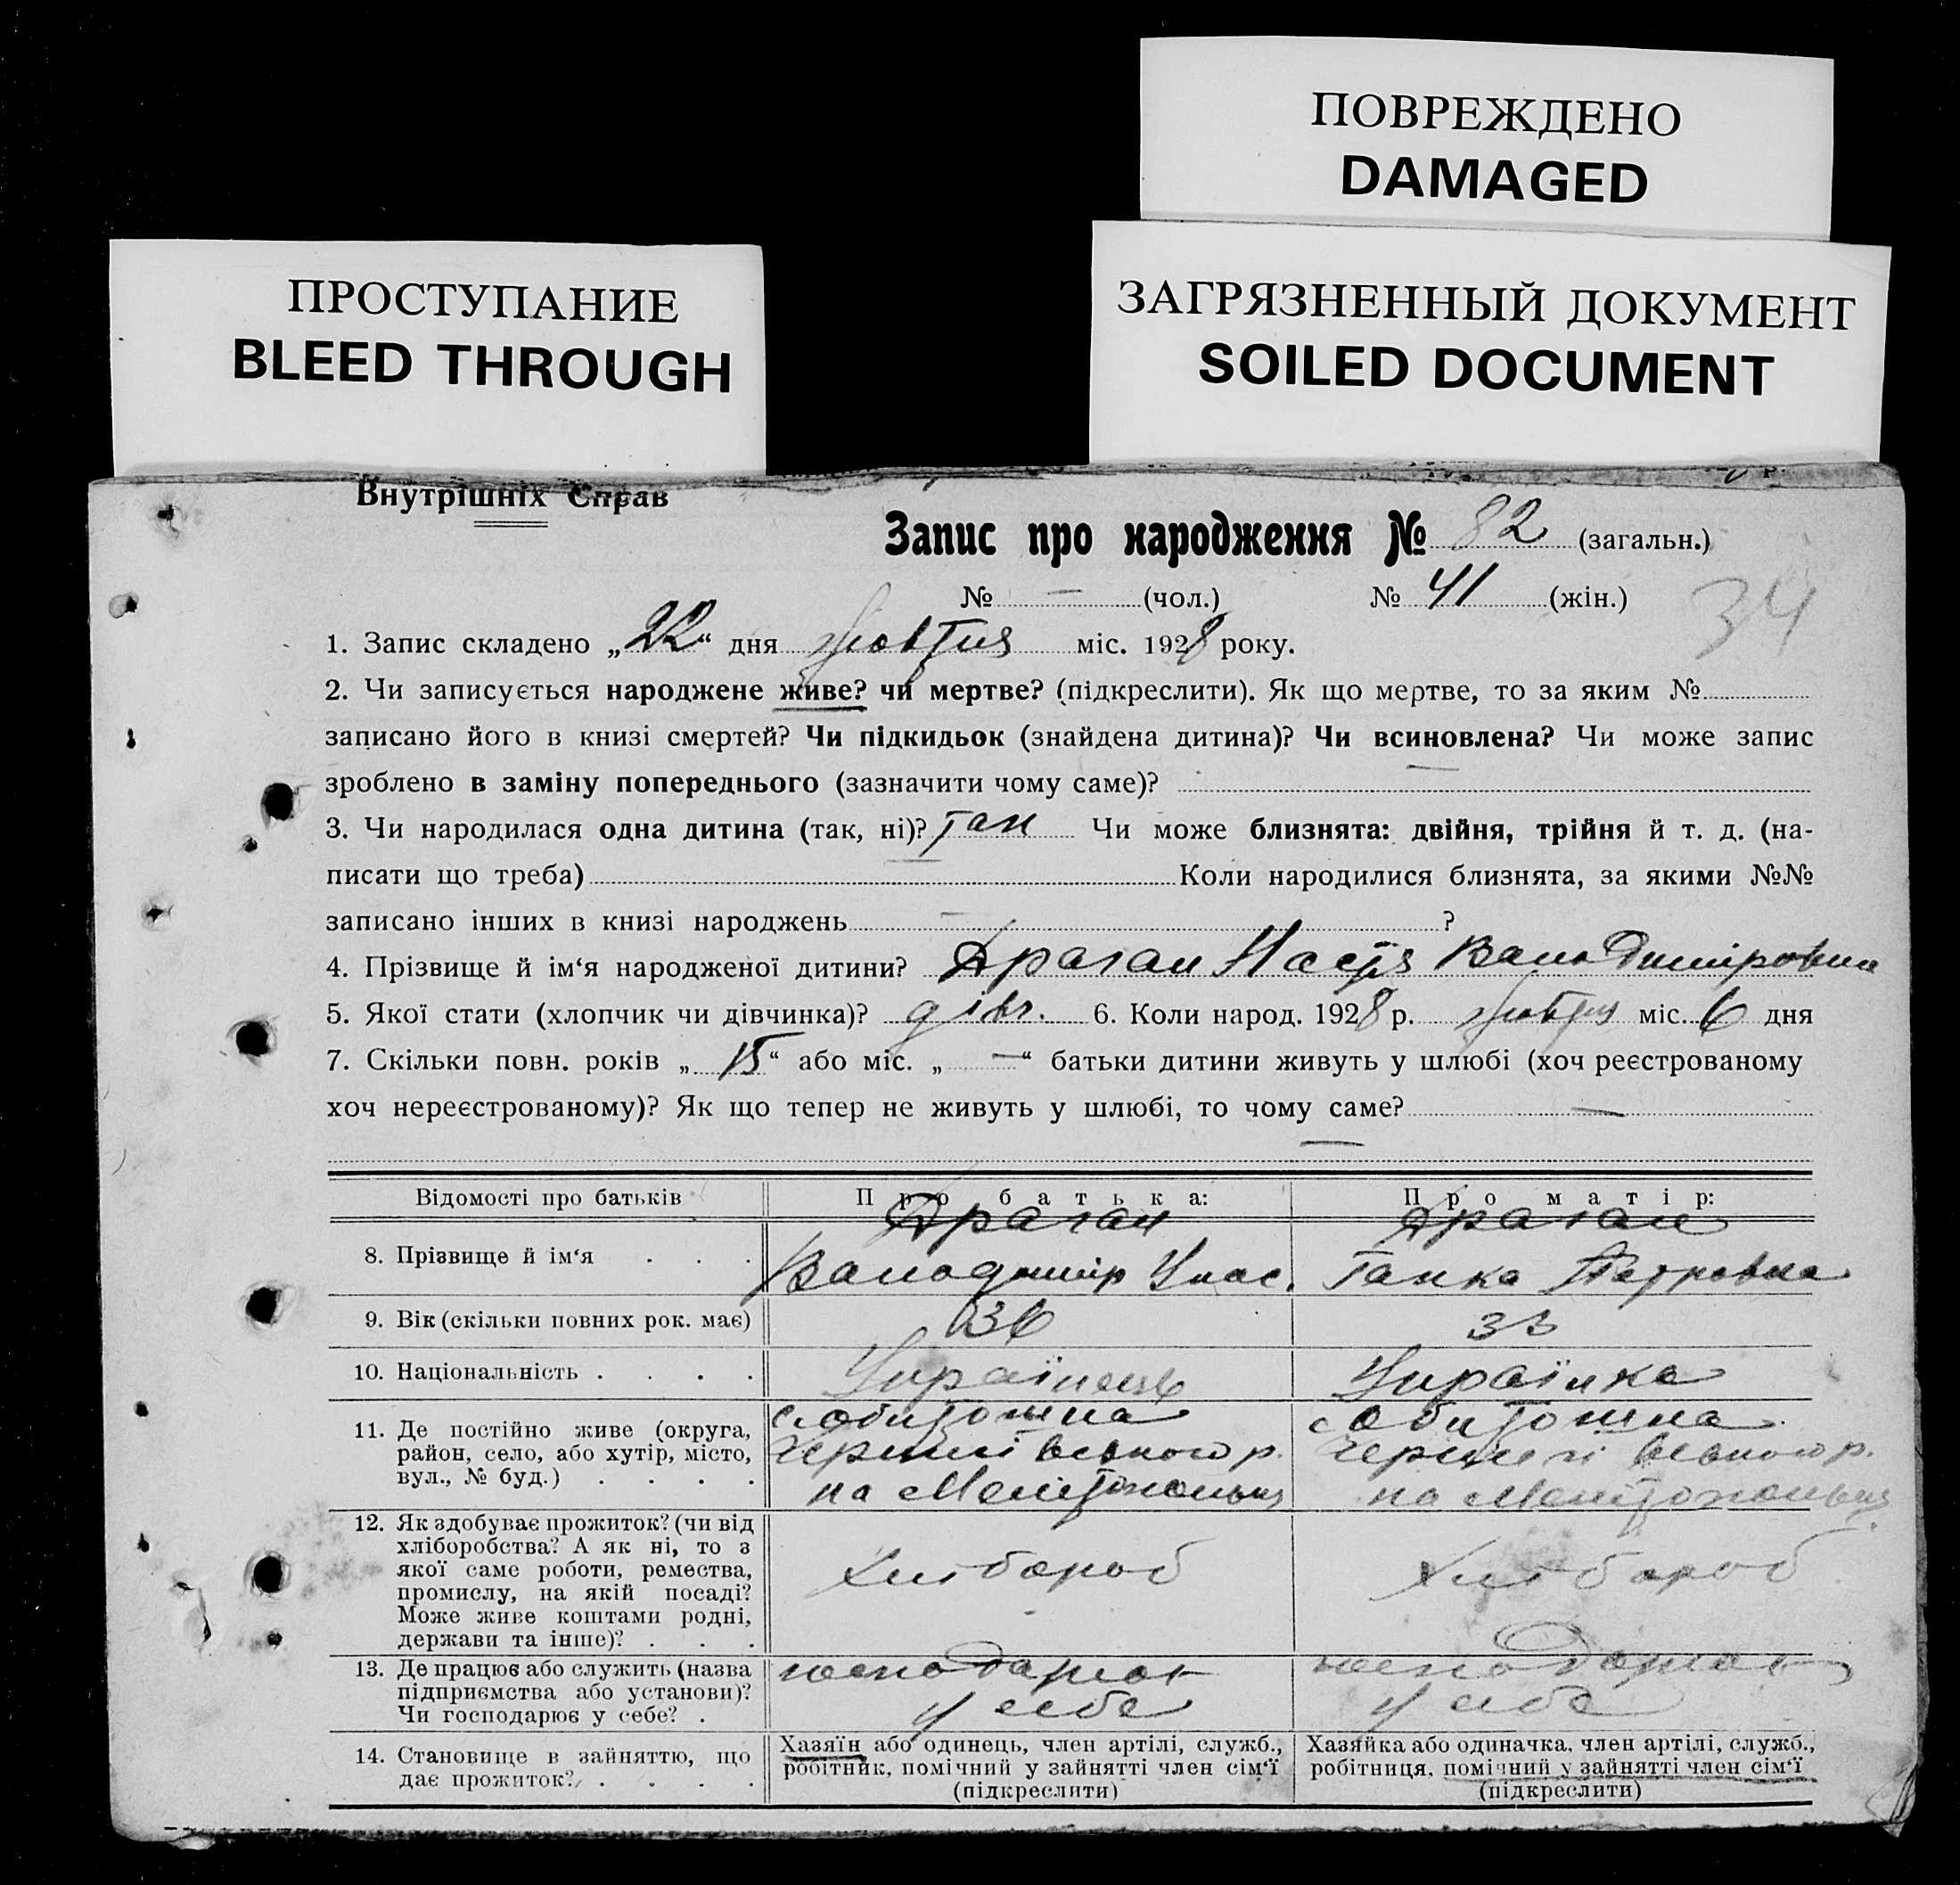 ПОВРЕЖДЕНО
DAMAGED
ПРОСТУПАНИЕ
BLEED THROUGH
ЗАГРЯЗНЕННЫЙ ДОКУМЕНТ
SOILED DOCUMENT
Внутрішніх Справ
Запис про народження № 82 (загальн.)
№ — (чол.) № 41 (жін.)
34
1. Запис складено „22“ дня жовтня міс. 1928 року.
2. Чи записується народжене живе? чи мертве? (підкреслити). Як що мертве, то за яким №
записано його в книзі смертей? Чи підкидьок (знайдена дитина)? Чи всиновлена? Чи може запис
зроблено в заміну попереднього (зазначити чому саме)? —
3. Чи народилася одна дитина (так, ні)? так Чи може близнята: двійня, трійня й т. д. (на-
писати що треба) — Коли народилися близнята, за якими №№
записано інших в книзі народжень — ?
4. Прізвище й ім‘я народженої дитини? Драган Настя Володимировна
5. Якої стати (хлопчик чи дівчинка)? дівч. 6. Коли народ. 1928 р. жовтня міс. 6 дня
7. Скільки повн. років „15“ або міс. „—“ батьки дитини живуть у шлюбі (хоч реєстрованому
хоч нереєстрованому)? Як що тепер не живуть у шлюбі, то чому саме? —
—
Відомості про батьків Про батька: Про матір:
8. Прізвище й ім‘я . . . Драган Драган
Володимір Ганка Петровна
9. Вік (скільки повних рок. має) 36 33
10. Національність . . . . Українець Українка
11. Де постійно живе (округа,
район, село, або хутір, місто,
вул., № буд.) . . . .
с Обиточна с Обиточна
р. р.
на Мелітопольщ на Мелітопольщ
12. Як здобуває прожиток? (чи від
хліборобства? А як ні, то з
якої саме роботи, ремества,
промислу, на якій посаді?
Може живе коштами родні,
держави та інше)? . . .
Хлібороб Хлібороб
13. Де працює або служить (назва
підприємства або установи)?
Чи господарює у себе? .
у себе у себе
14. Становище в зайняттю, що
дає прожиток? . . . .
Хазяїн або одинець, член артілі, служб.,
робітник, помічний у зайнятті член сім‘ї
(підкреслити)
Хазяйка або одиначка, член артілі, служб.,
робітниця, помічний у зайнятті член сім‘ї
(підкреслити)